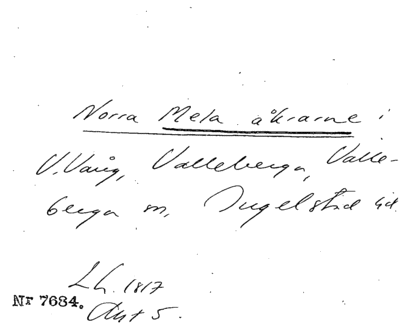 Norra Mela åkrarne i
V. Vång, Valleberga, Valle-
berga m, Ingelstad hd.
L.L. 1817
Nr 7684.
Akt 5.